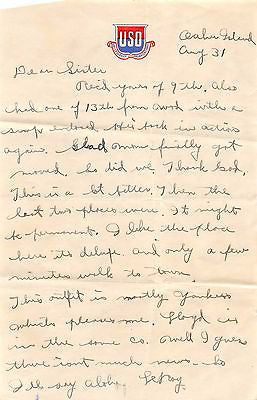 USO
Oahu Island
Aug 31
Dear Sister
Recid yours of 9th. Also
had one of 13th from with a
snap enclosed. His back in action
again. Glad mom finally got
moved. So did we. Thank God.
This is a lot better. Then the
last two places were. It might
be permanent. I like the place
here its and only a few
minutes walk to town.
This outfit is mostly Yankees
which pleases me. Lloyd is
in the same co. Well I guess
there isnt much news. So
I'll say Aloha, LeRoy